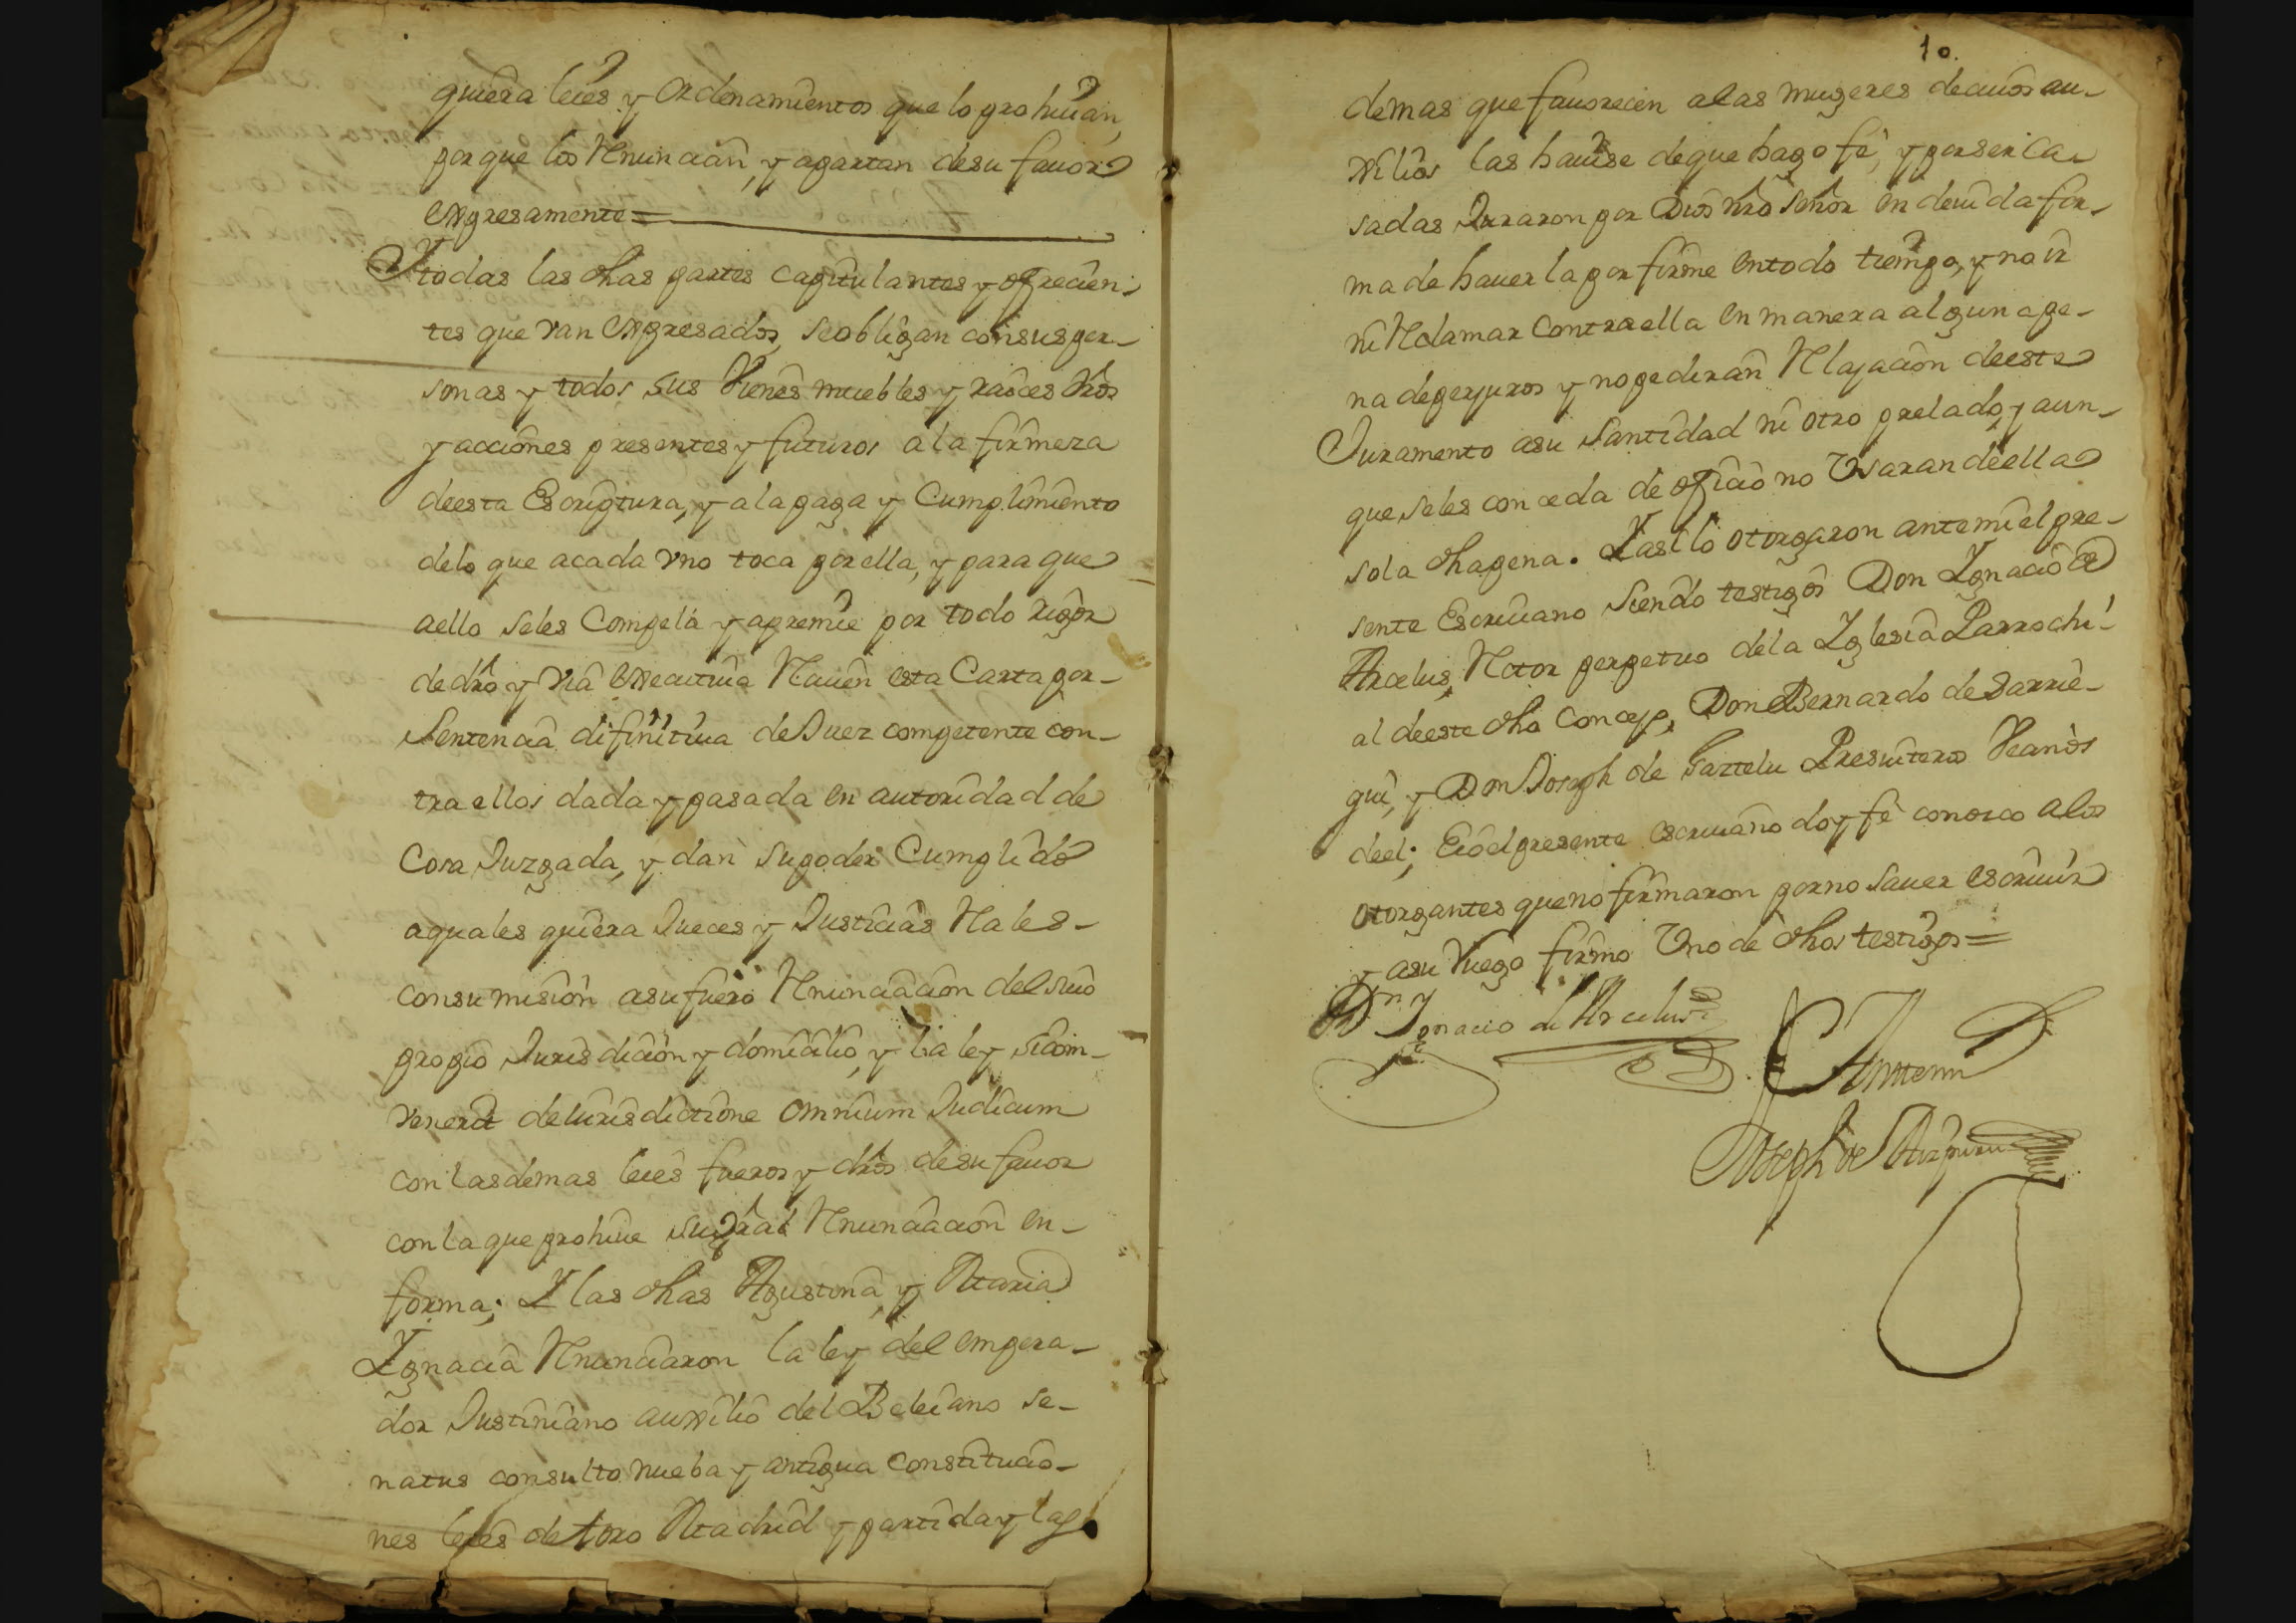 quiera leies y Ordenamientos que lo prohiuan,
porque los Renuncian, y apartan desu fauor
expresamente =
Y todas las dhas partes capitulantes y ofrecien-
tes que van expresados, se obligan consus per-
sonas y todos sus Vienes muebles y raices dros
y acciones presentes y futuros a la firmeza
deesta Escriptura, y a la paga y Cumplimiento
delo que acada vno toca por ella, y para que
aello seles Compela y apremie por todo rigor
de dro y via executiua Rauen esta Carta por-
Sentencia difinitiua de Juez competente con-
tra ellos dada y pasada en autoridad de
Cosa Juzgada, y dan su poder Cumplido
aquales quiera Jueces y Justicias Rales-
consumision asufuero Renunciacion del suio
propio Jurisdicion y domicilio, y la ley Sicom-
venerit de Iurisdictione omnium Judicum
con las demas leies fueros y dros desu fauor
con la que prohiue su gral Renunciacion en-
forma; Y las dhas Agustina, y Maria
Ygnacia Renunciaron la ley del empera-
dor Justiniano auxilio del Beleiano se-
natus consulto nueba y antigua Constitucio-
nes leies de toro Madrid y partida y las
10.
demas que fauorecen alas mugeres decuios au-
xilios las hauise deque hago fe, y porser ca-
sadas Juraron por Dios nro señor en deuida for-
ma de hauerla por firme entodo tiempo, y no ir
ni Rclamar contra ella en manera alguna pe-
na deperjuros y nopediran Rlajacion deeste
Juramento asu Santidad ni otro prelado, y aun-
que seles conceda de oficio no Vsaran deella
sola dha pena. Y asi lo otorgaron antemi el pre-
sente Escriuano siendo testigos Don Ygnacio de
Arcelus, Rctor perpetuo dela Yglesia Parrochi-
al deeste dho Concejo, Don Bernardo de Sarrie-
gui, y Don Joseph de Gaztelu Presuiteros Vecinos
deel; E io el presente escriuano doy fe conozco alos
otorgantes que no firmaron porno sauer escriuir
y asu Ruego firmo Uno de dhos testigos =
Dn. Ygnacio de Arcelus
Antemi
Joseph de Aizpuru